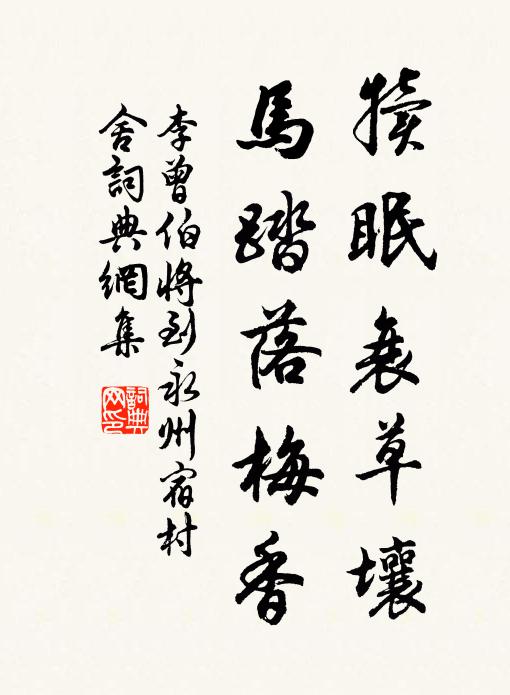 犢眠衰草壤
馬踏落梅香
李曾伯將到永州宿村
舍詞典網集
詞典網印